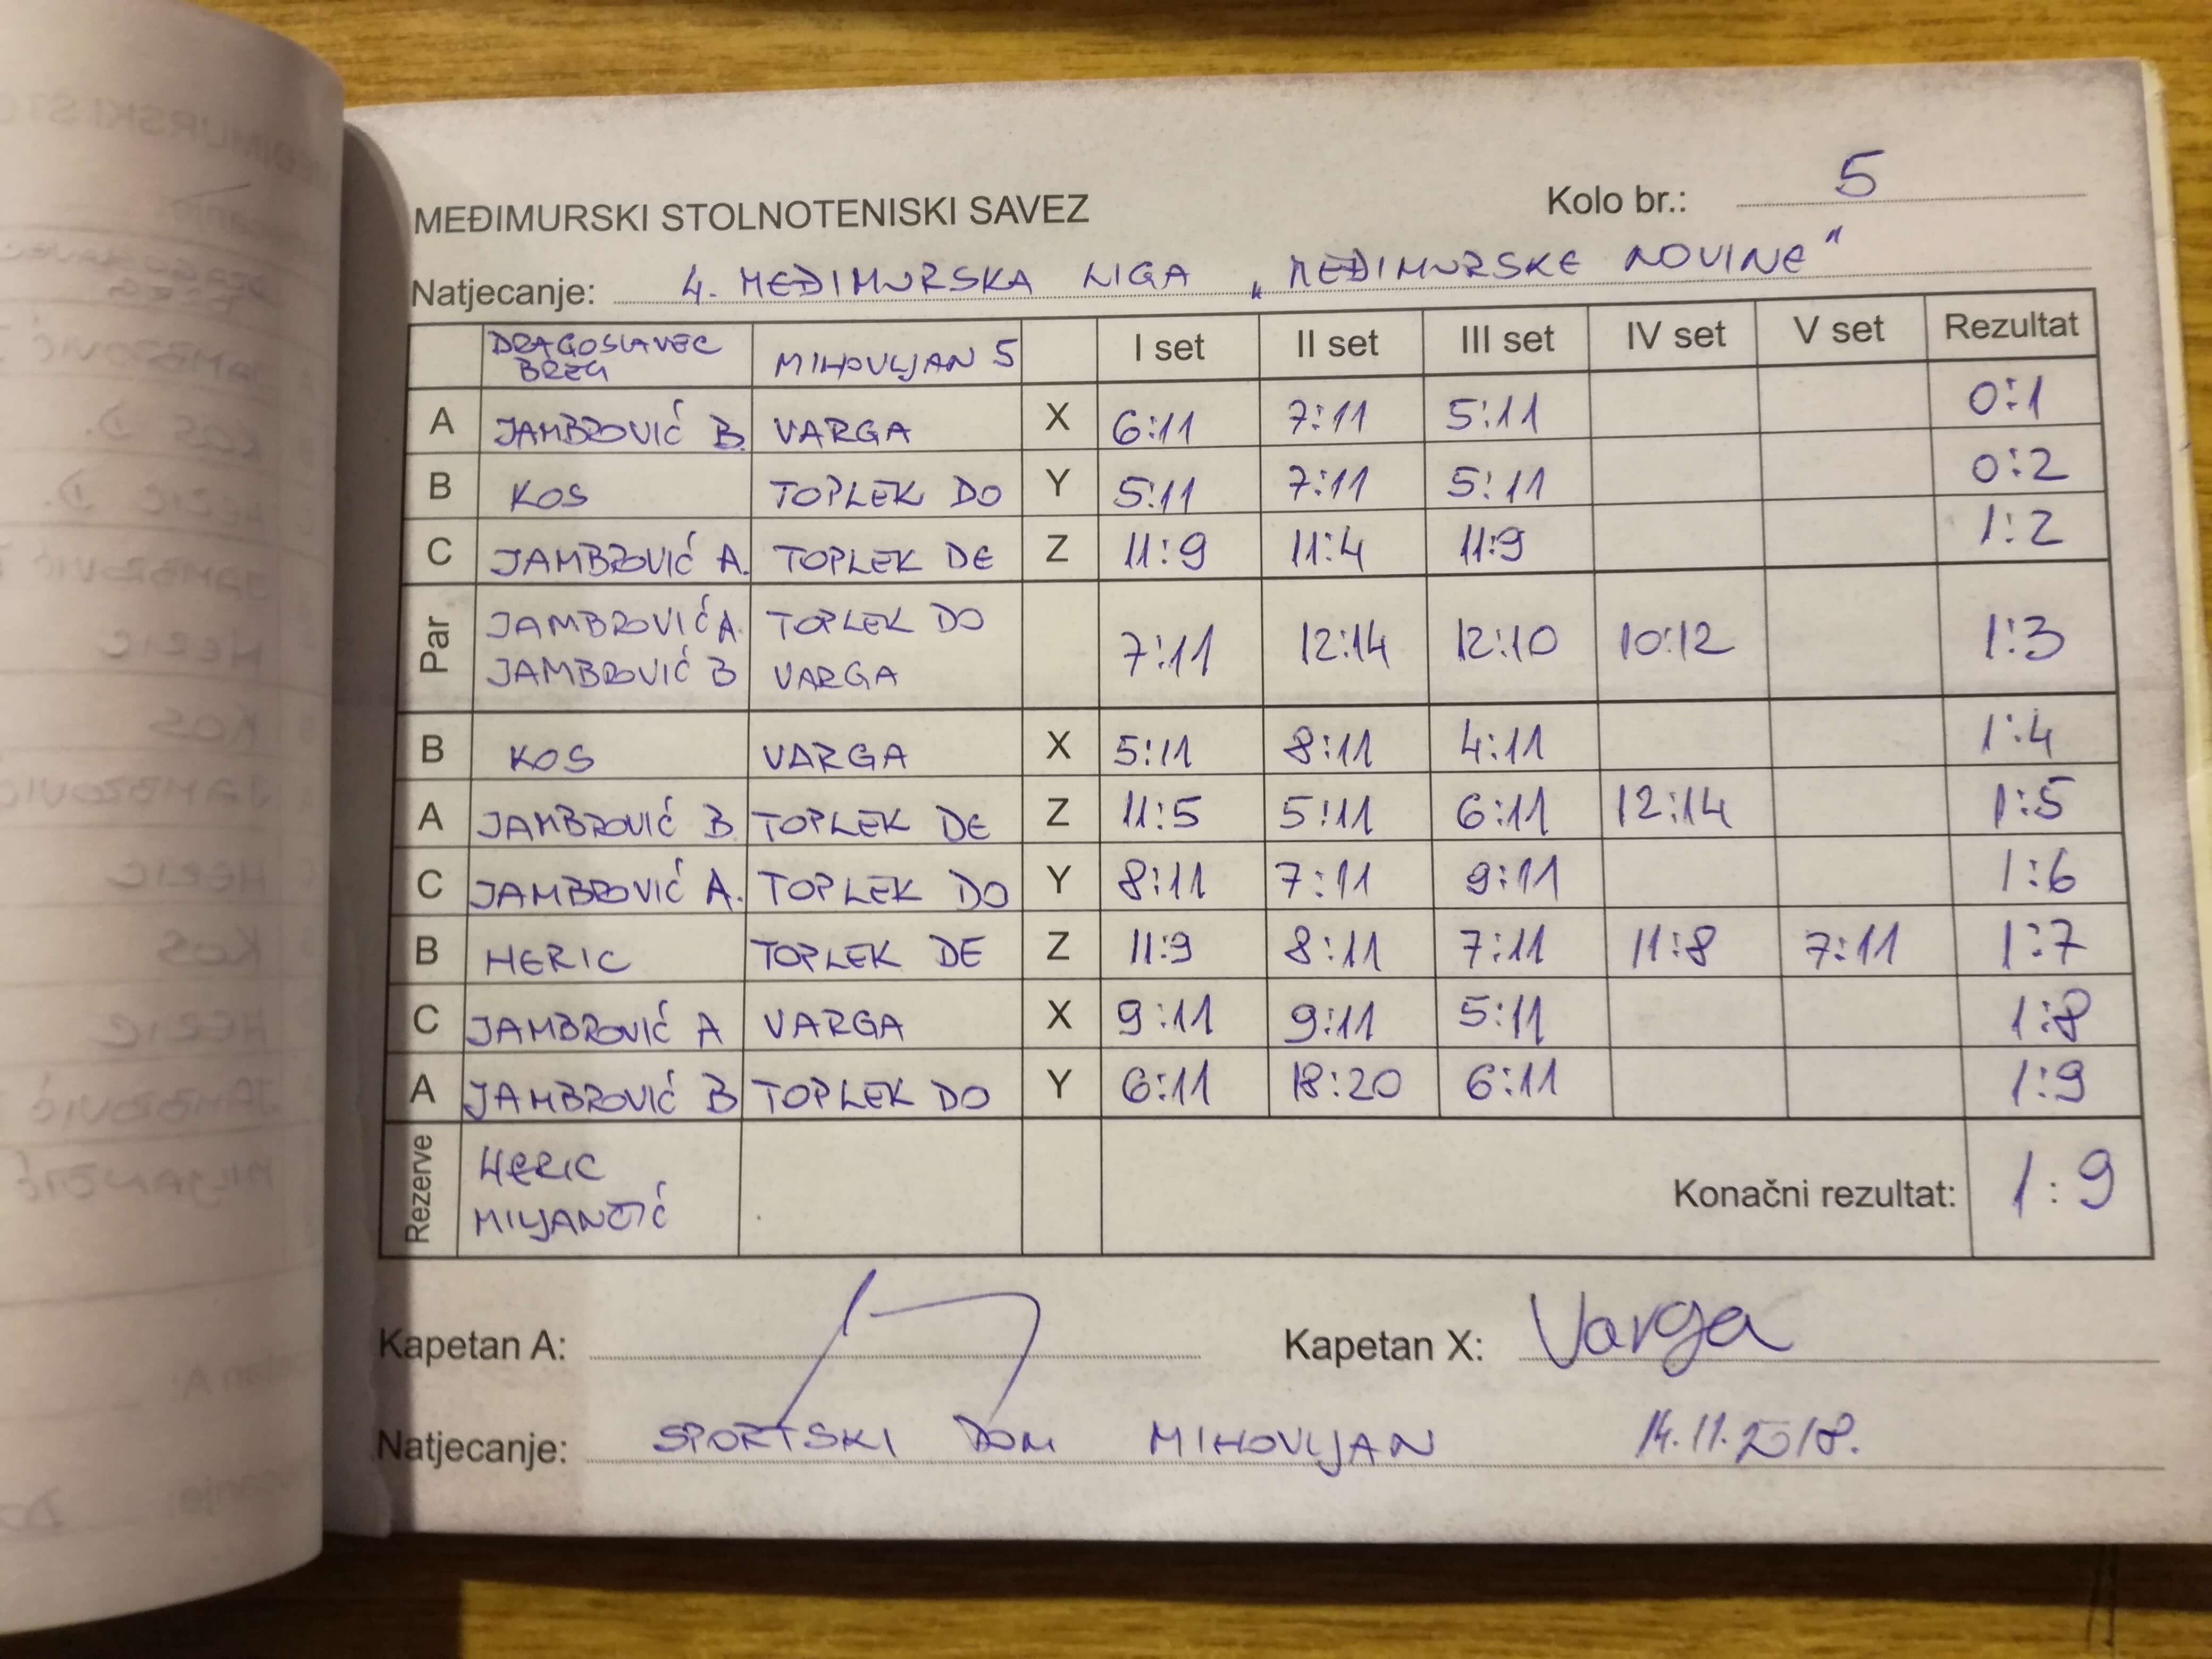 MEĐIMURSKI STOLNOTENISKI SAVEZ Kolo br.: 5
Natjecanje: 4. MEĐIMURSKA LIGA „MEĐIMURSKE NOVINE"
DRAGOSLAVEC BREG MIHOVLJAN 5 I set II set III set IV set V set Rezultat
A JAMBROVIĆ B. VARGA X 6:11 7:11 5:11 0:1
B KOS TOPLEK DO Y 5:11 7:11 5:11 0:2
C JAMBROVIĆ A. TOPLEK DE Z 11:9 11:4 11:9 1:2
Par JAMBROVIĆ A. TOPLEK DO 7:11 12:14 12:10 10:12 1:3
JAMBROVIĆ B VARGA
B KOS VARGA X 5:11 8:11 4:11 1:4
A JAMBROVIĆ B TOPLEK DE Z 11:5 5:11 6:11 12:14 1:5
C JAMBROVIĆ A. TOPLEK DO Y 8:11 7:11 9:11 1:6
B HERIC TOPLEK DE Z 11:9 8:11 7:11 11:8 7:11 1:7
C JAMBROVIĆ A VARGA X 9:11 9:11 5:11 1:8
A JAMBROVIĆ B TOPLEK DO Y 6:11 18:20 6:11 1:9
Rezerve HERIC
MILJANČIĆ
Konačni rezultat: 1:9
Kapetan A: Kapetan X: Varga
Natjecanje: SPORTSKI DOM MIHOVLJAN 14.11.2018.